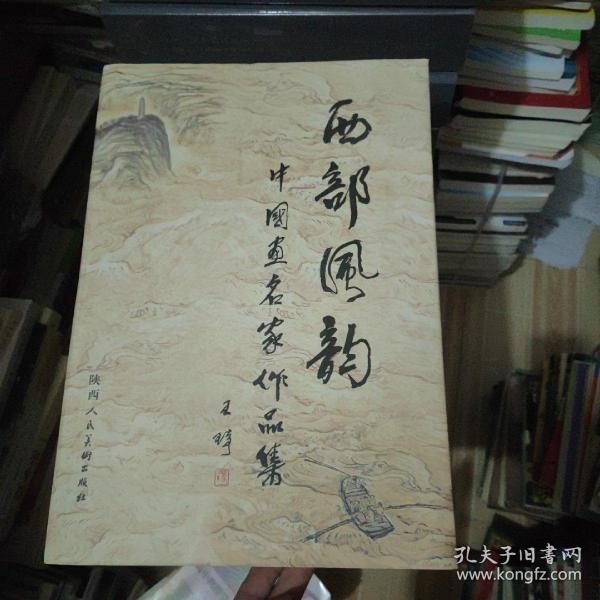 西部風韵
中國畫名家作品集
王璋
陕西人民美術出版社
孔夫子旧書网
www.kongfz.com